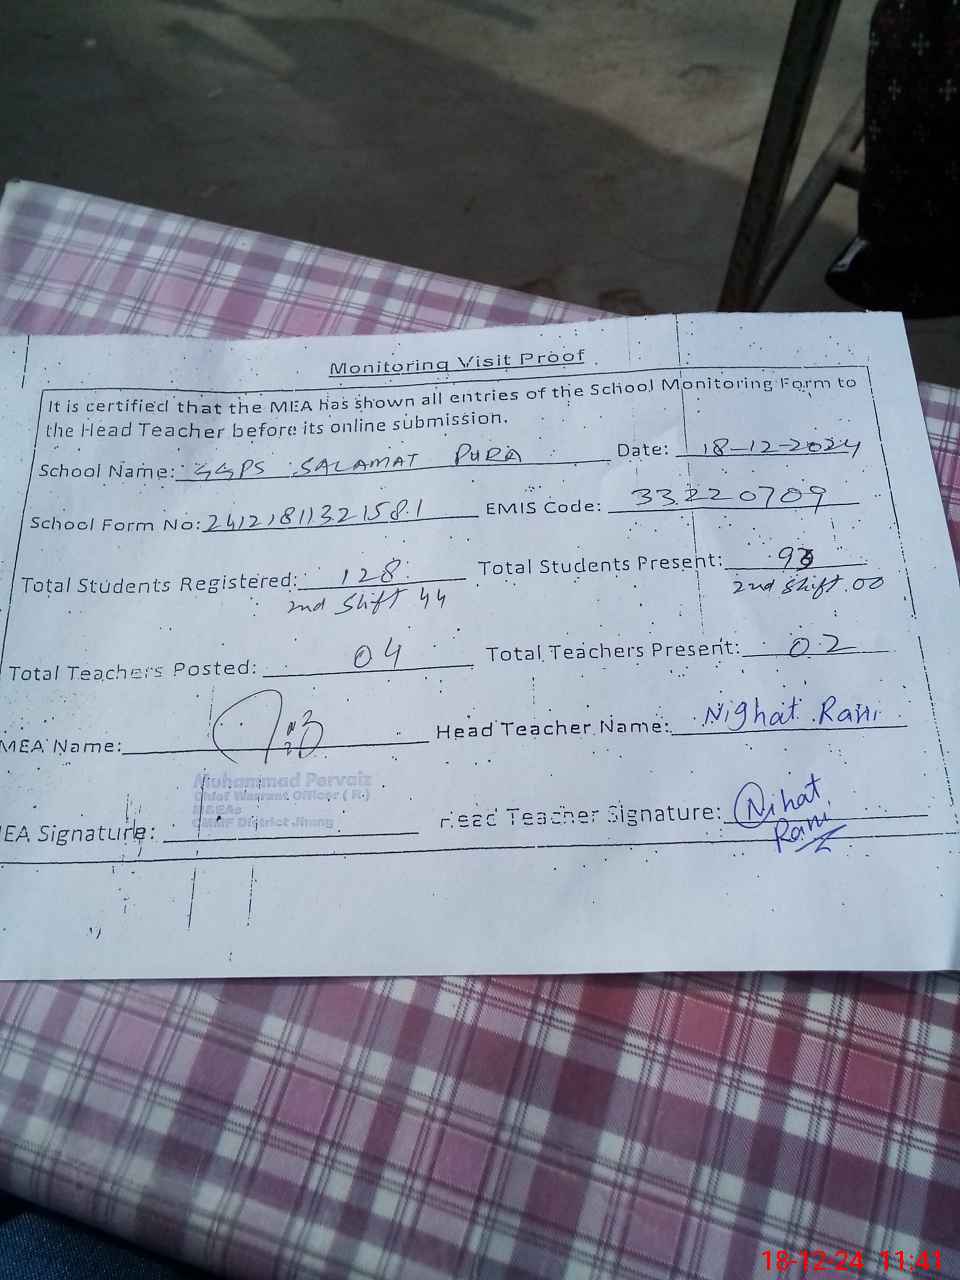 Monitoring Visit Proof
It is certified that the MEA has shown all entries of the School Monitoring Form to
the Head Teacher before its online submission.
School Name: GGPS SALAMAT PURA Date: 18-12-2024
School Form No: 24121811321581 EMIS Code: 33220709
Total Students Registered: 128 Total Students Present:
2nd Shift 44 2nd Shift.00
Total Teachers Posted: 04 Total Teachers Present: 02
MEA Name: Head Teacher Name: Nighat Rani
Muhammad Pervaiz
Chief Warrant Officer (R.)
MEA Signature: Head Teacher Signature: Nihat
District Jhang
Rani
18-12-24 11:41